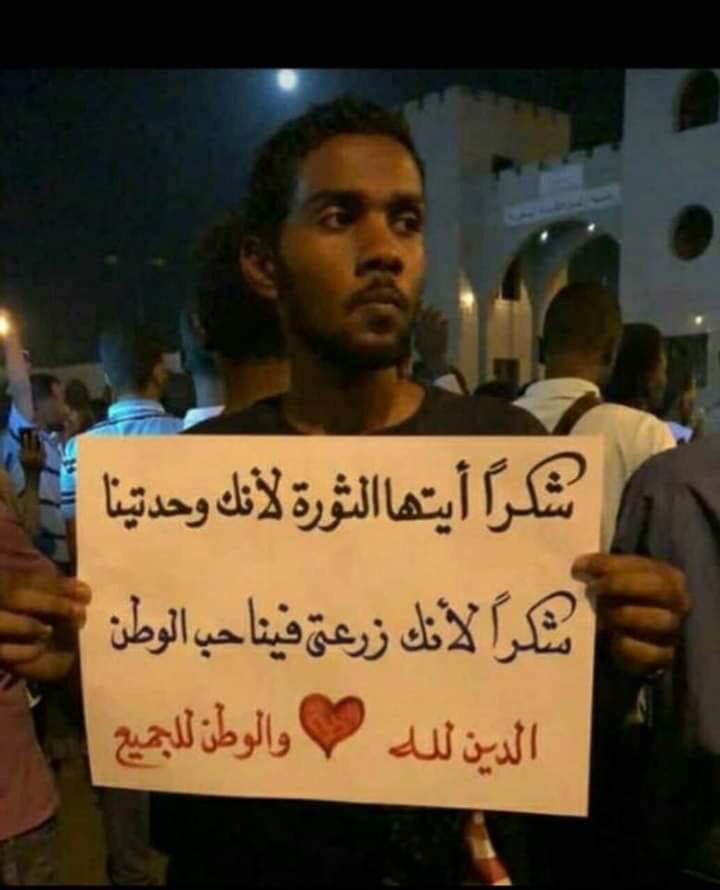 شكراً أيتها الثورة لأنك وحدتينا
شكراً لأنك زرعتي فينا حب الوطن
الدين لله والوطن للجميع